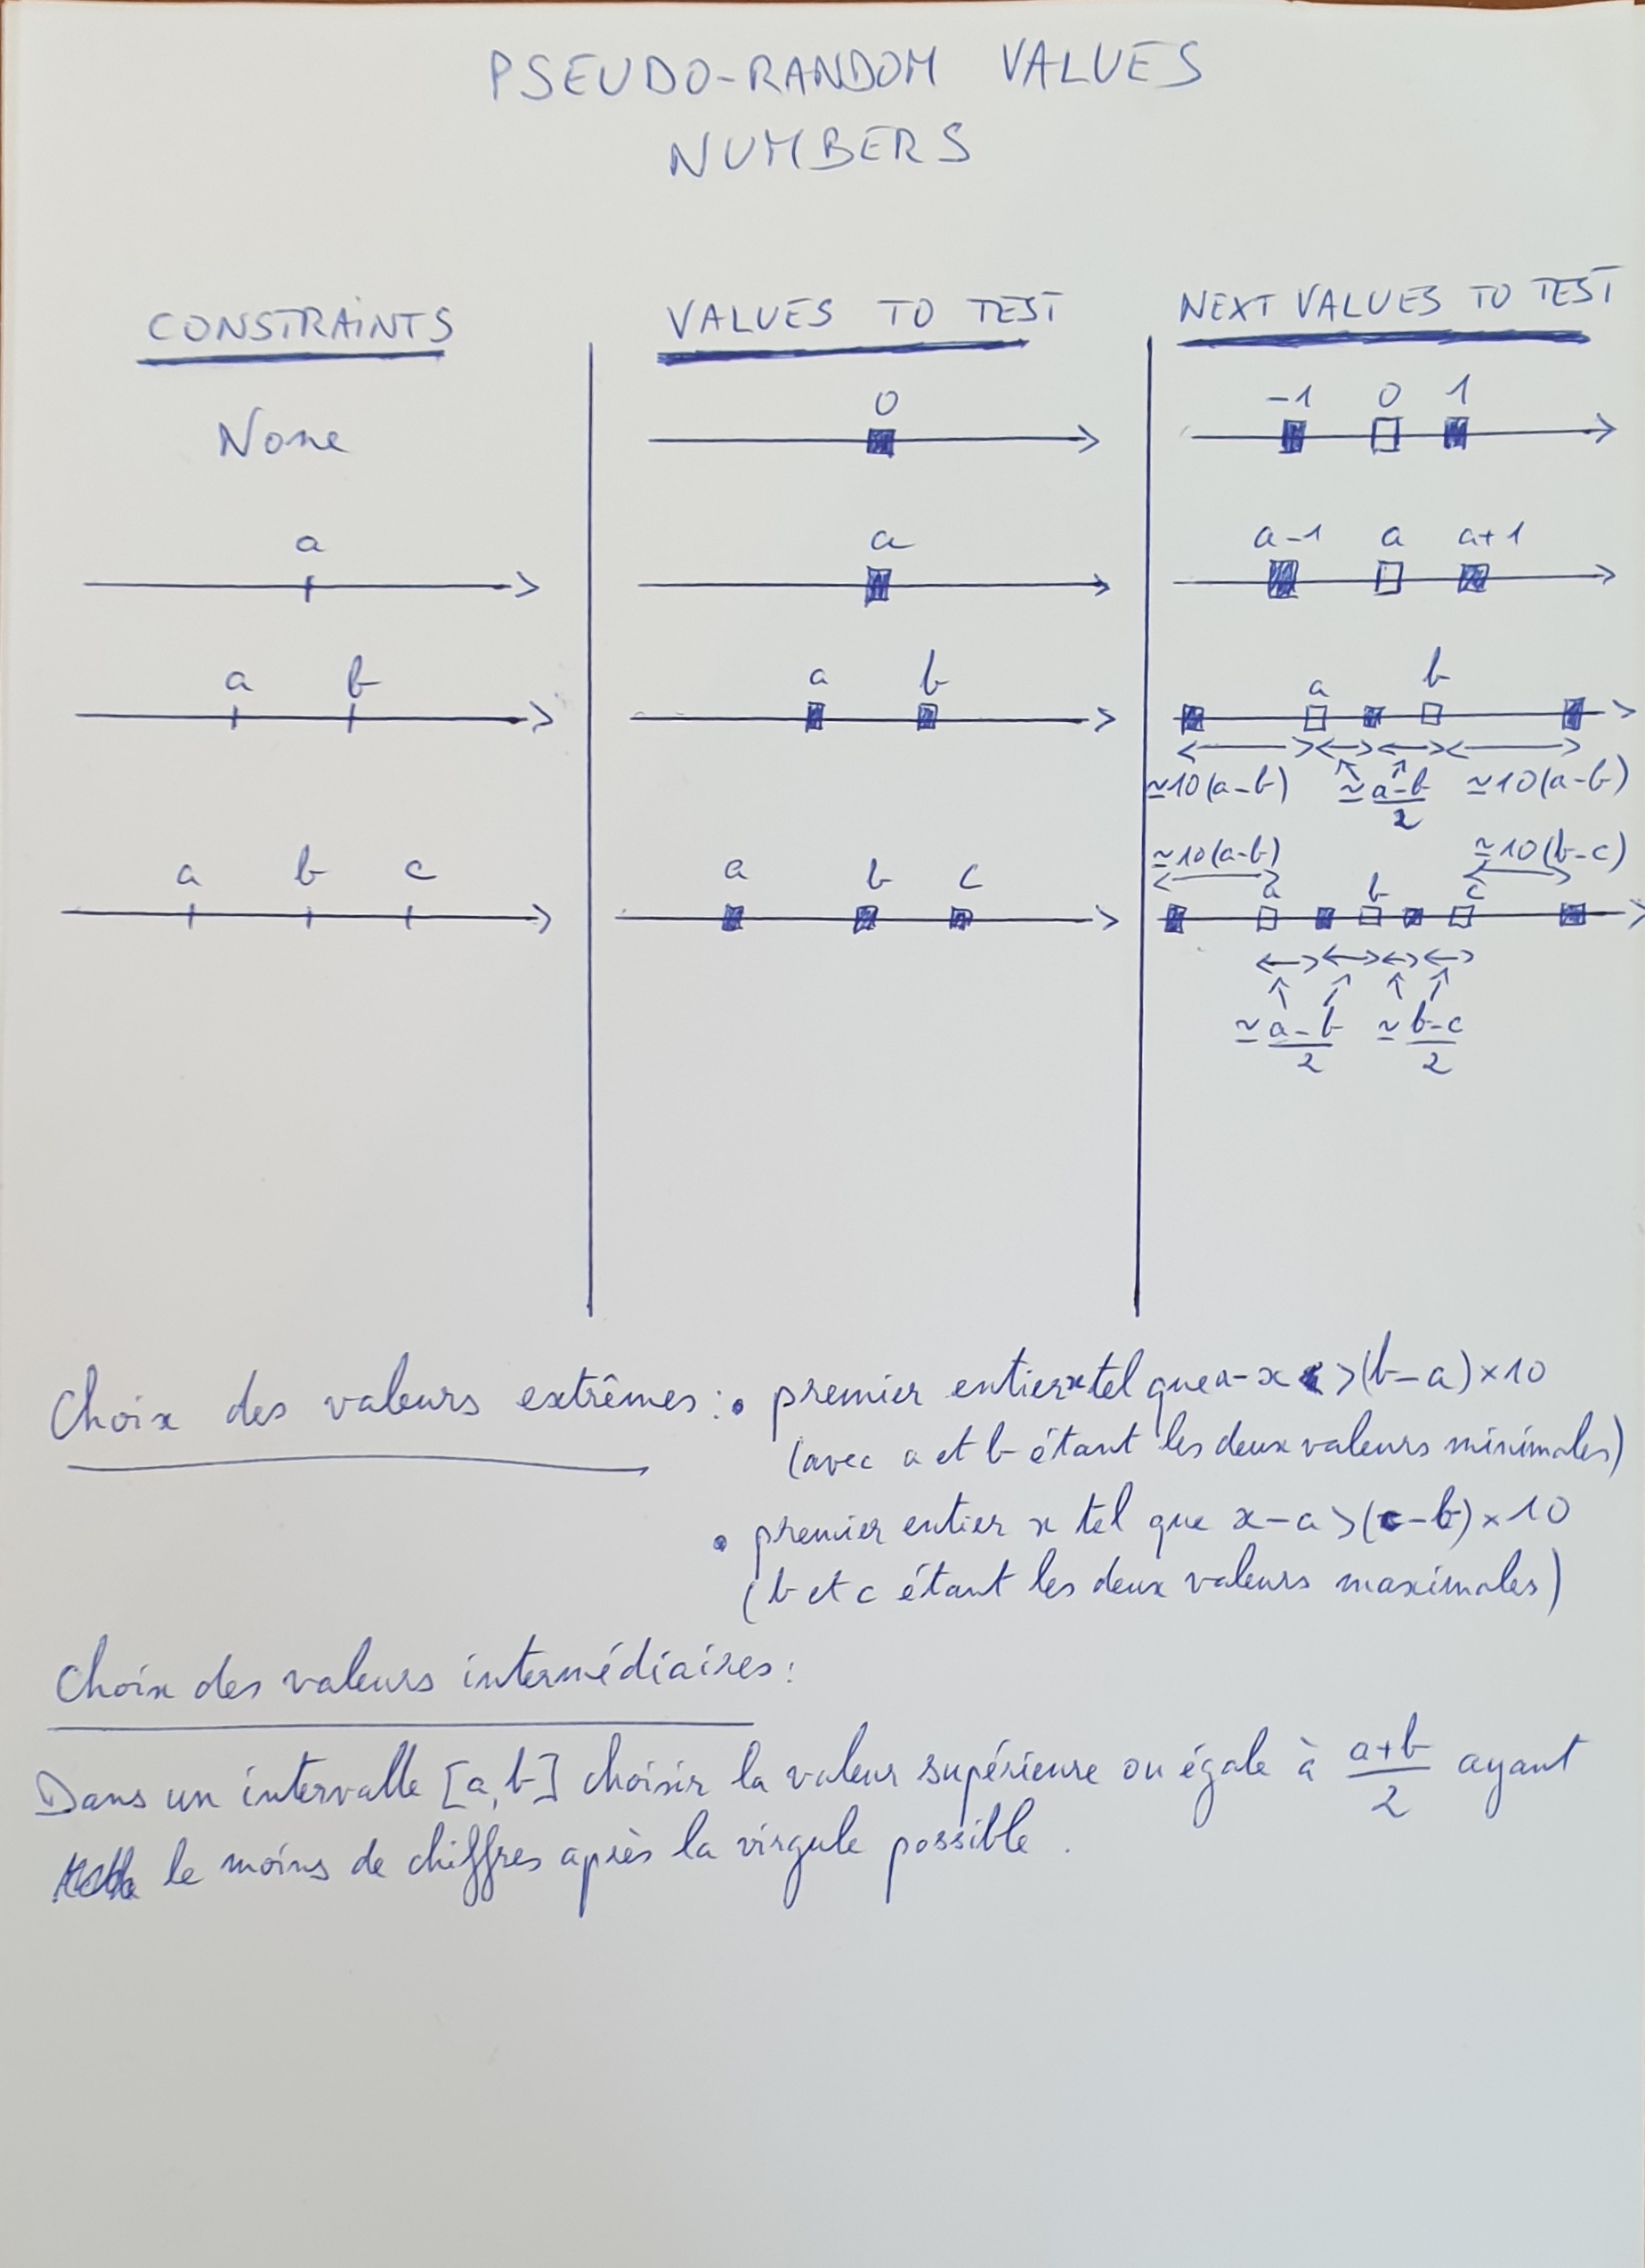 PSEUDO-RANDOM VALUES
NUMBERS
CONSTRAINTS
VALUES TO TEST
NEXT VALUES TO TEST
None
0
-1 0 1
a
a
a-1 a a+1
a b
a b
a b
≃10(a-b) ≃(a-b)/2 ≃10(a-b)
a b c
a b c
≃10(a-b) ≃10(b-c)
a b c
≃(a-b)/2 ≃(b-c)/2
Choix des valeurs extrêmes : • premier entier x tel que a-x >(b-a)×10
(avec a et b étant les deux valeurs minimales)
• premier entier x tel que x-a>(c-b)×10
(b et c étant les deux valeurs maximales)
Choix des valeurs intermédiaires :
Dans un intervalle [a,b] choisir la valeur supérieure ou égale à (a+b)/2 ayant
le moins de chiffres après la virgule possible.